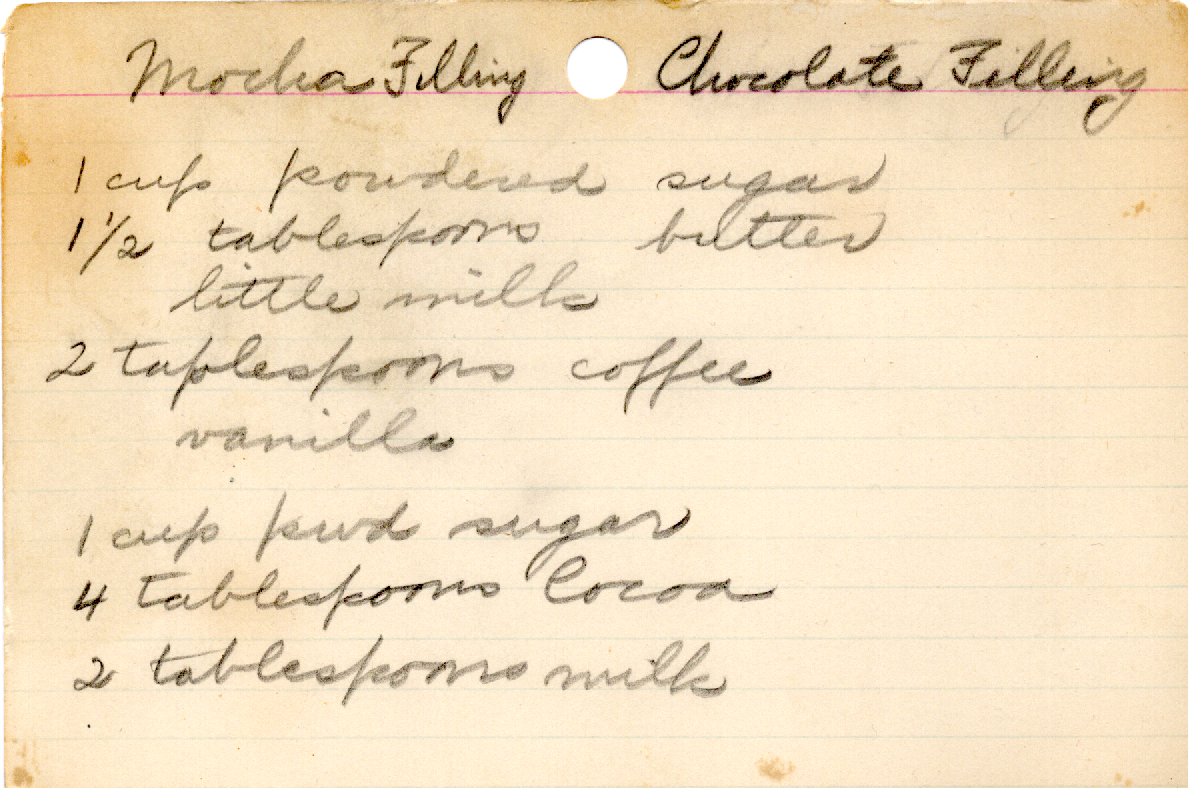 Mocha Filling Chocolate Filling
1 cup powdered sugar
1 1/2 tablespoons butter
little milk
2 taplespoons coffee
vanilla
1 cup pwd sugar
4 tablespoons Cocoa
2 tablespoons milk